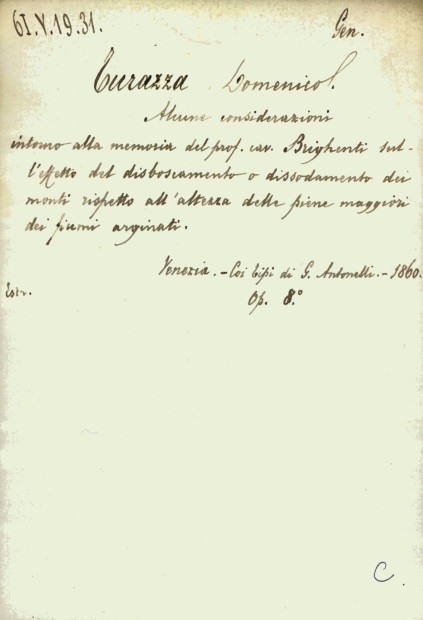 61.V.19.31.
Gen.
Turazza Domenico
Alcune considerazioni
intorno alla memoria del prof. cav. Brighenti sul-
l'effetto del disboscamento o dissodamento dei
monti rispetto all'altezza delle piene maggiori
dei fiumi arginati.
Venezia. - Coi tipi di G. Antonelli. - 1860.
Estr.
Op. 8.°
C